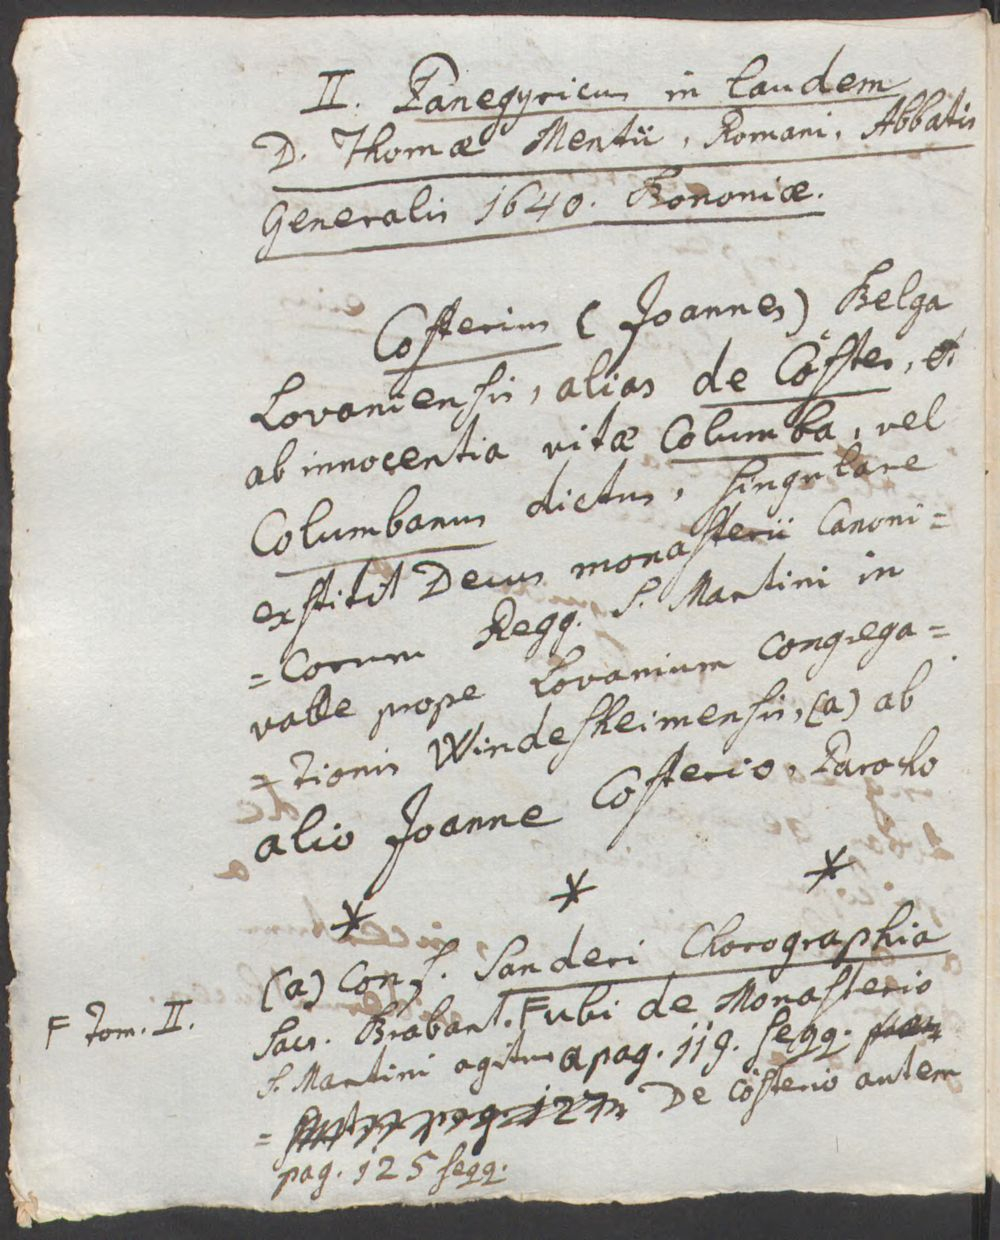 II. Panegyricus in laudem
D. Thomæ Mentii, Romani, Abbatis
Generalis 1640. Bononiæ.
Costerius (Joannes) Belga
Lovaniensis, alias de Cöster, et
ab innocentia vitæ Columba, vel
Columbanus dictus, singulare
exstitit Decus monasterii Canoni=
=corum Regg. S. Martini in
valle prope Lovanium Congrega=
=tionis Windesheimensis, (a) ab
alio Joanne Costerio, Parocho
* * *
(a) Conf. Sanderi Chorographia
F Tom. II.
Sacr. Brabant. F ubi de Monasterio
S. Martini agitur a pag. 119. seqq.
= De Cösterio autem
pag. 125 seqq.